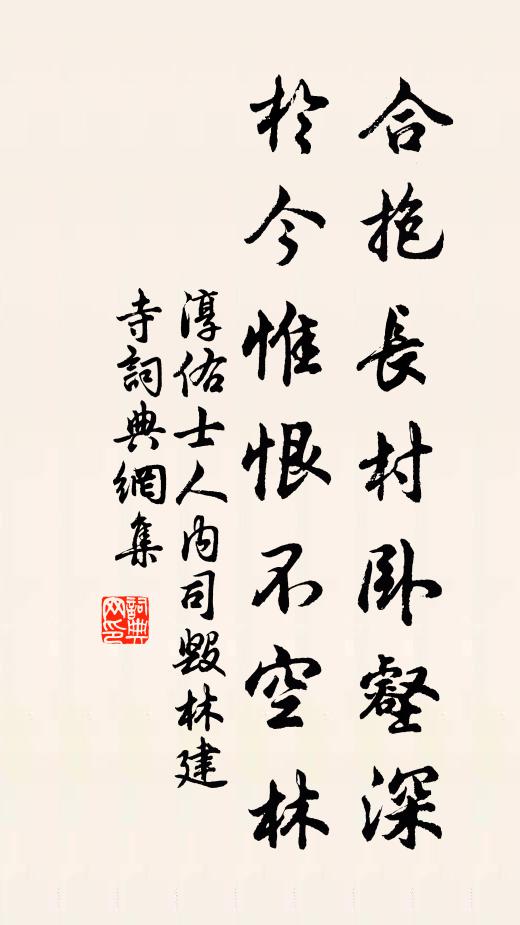 合抱長村臥壑深
於今惟恨不空林
淳佑士人內司毀林建
寺詞典網集
詞典網印